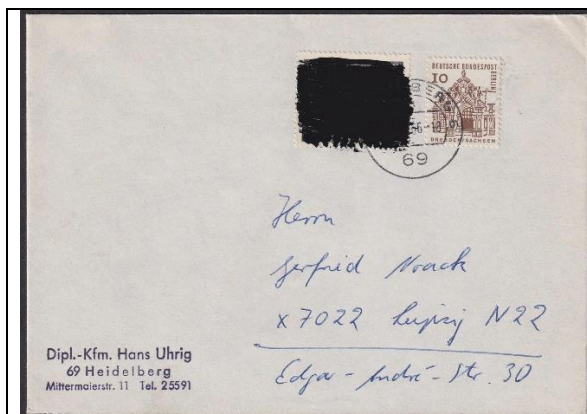 DEUTSCHE BUNDESPOST
BERLIN
10
DRESDEN/SACHSEN
69
Herrn
Gerfried Noack
X 7022 Leipzig N22
Edgar-André-Str. 30
Dipl.-Kfm. Hans Uhrig
69 Heidelberg
Mittermaierstr. 11 Tel. 25591